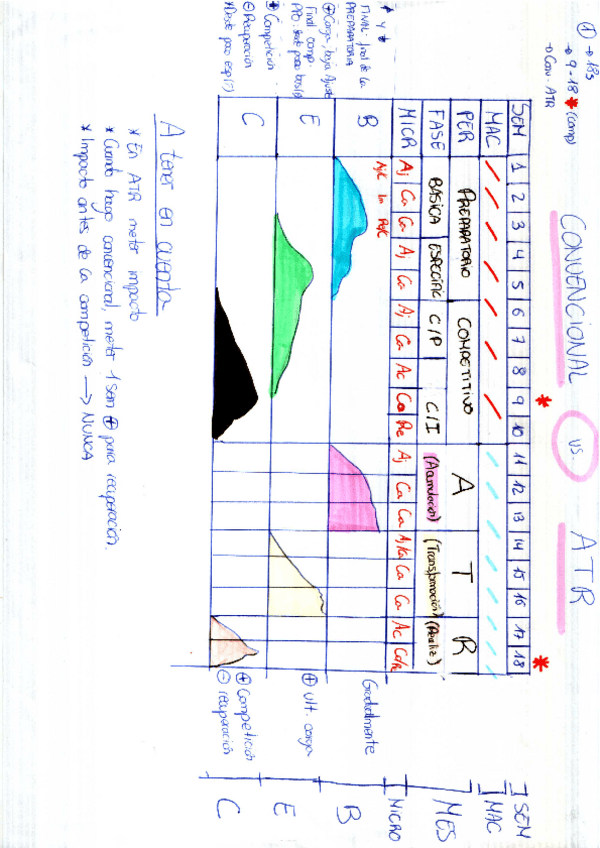 ① → 18s
→ 9-18 * (comp)
→ Con. ATR
CONVENCIONAL vs. ATR
SEM 1 2 3 4 5 6 7 8 9 10 11 12 13 14 15 16 17 18 SEM
MAC MAC
PER PREPARATORIO COMPETITIVO A T R MES
FASE BÁSICA ESPECÍFIC C/P C/I (Acumulación) (Transformación) (Realiz)
MICR Aj Ca Ca Aj Ca Aj Ca Ac Ca Re Aj Ca Ca Ca Ca Ac MICRO
B Gradualmente B
E ⊕ ult. carga E
C ⊕ Competición C
⊖ recuperación
FINAL: final de la
PREPARATORIA
⊕ Carga, baja Ajuste
Final comp.
⊕ Competición
⊖ Recuperación
A tener en cuenta
* En ATR meter impacto
* Cuando hago convencional, meter 1 sem ⊕ para recuperación.
* Impacto antes de la competición → NUNCA